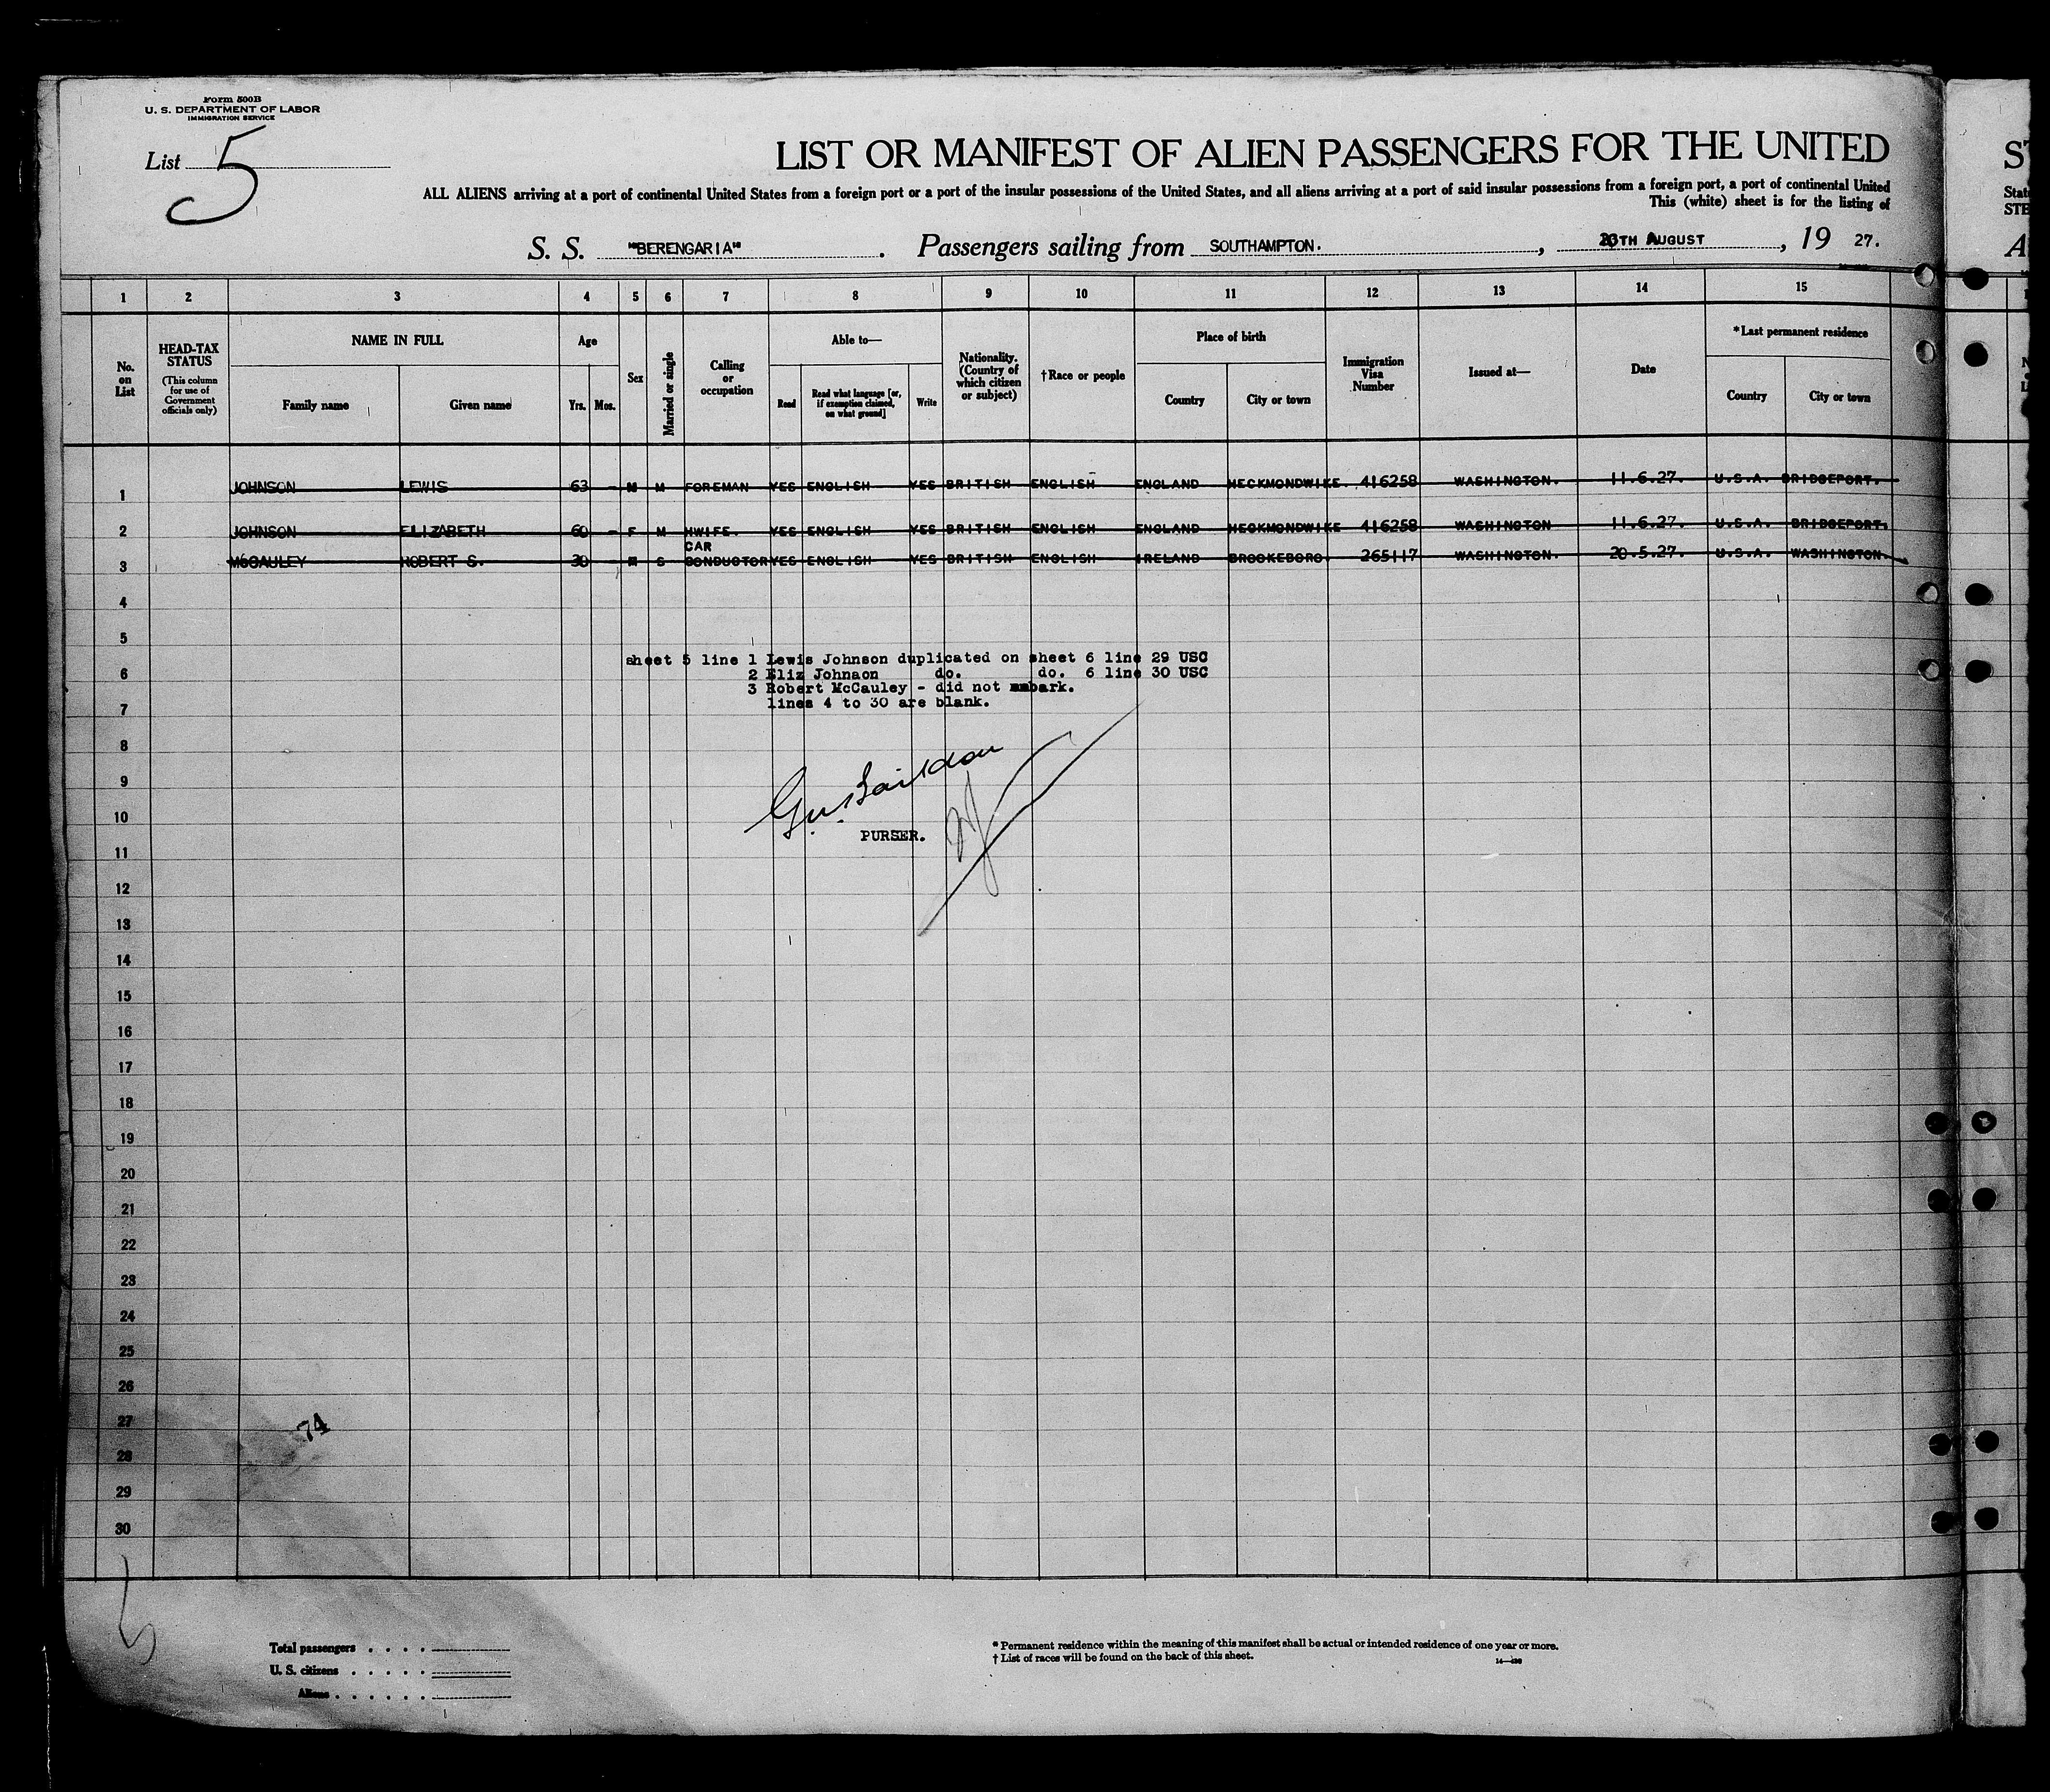 Form 500B
U. S. DEPARTMENT OF LABOR
IMMIGRATION SERVICE
List 5
LIST OR MANIFEST OF ALIEN PASSENGERS FOR THE UNITED
ALL ALIENS arriving at a port of continental United States from a foreign port or a port of the insular possessions of the United States, and all aliens arriving at a port of said insular possessions from a foreign port, a port of continental United
This (white) sheet is for the listing of
S. S. "BERENGARIA". Passengers sailing from SOUTHAMPTON., AUGUST, 19 27.
1 2 3 4 5 6 7 8 9 10 11 12 13 14 15
No. on List
HEAD-TAX STATUS
(This column for use of Government officials only)
NAME IN FULL
Family name Given name
Age
Yrs. Mos.
Sex
Married or single
Calling or occupation
Able to—
Read
Read what language [or, if exemption claimed, on what ground]
Write
Nationality. (Country of which citizen or subject)
†Race or people
Place of birth
Country City or town
Immigration Visa Number
Issued at—
Date
*Last permanent residence
Country City or town
1 JOHNSON LEWIS 63 - M M FOREMAN YES ENGLISH YES BRITISH ENGLISH ENGLAND HECKMONDWIKE. 416258 WASHINGTON. 11.6.27. U.S.A. BRIDGEPORT.
2 JOHNSON ELIZABETH 60 - F M HWIFE. YES ENGLISH YES BRITISH ENGLISH ENGLAND HECKMONDWIKE 416258 WASHINGTON 11.6.27. U.S.A. BRIDGEPORT.
3 McCAULEY ROBERT S. 30 - M S CAR CONDUCTOR YES ENGLISH YES BRITISH ENGLISH IRELAND BROOKEBORO. 265117 WASHINGTON. 20.5.27. U.S.A. WASHINGTON.
4
5
sheet 5 line 1 Lewis Johnson duplicated on sheet 6 line 29 USC
6
2 Eliz Johnaon do. do. 6 line 30 USC
3 Robert McCauley - did not embark.
7
lines 4 to 30 are blank.
8
9
10
PURSER.
11
12
13
14
15
16
17
18
19
20
21
22
23
24
25
26
27
74
28
29
30
Total passengers
U. S. citizens
Aliens
* Permanent residence within the meaning of this manifest shall be actual or intended residence of one year or more.
† List of races will be found on the back of this sheet.